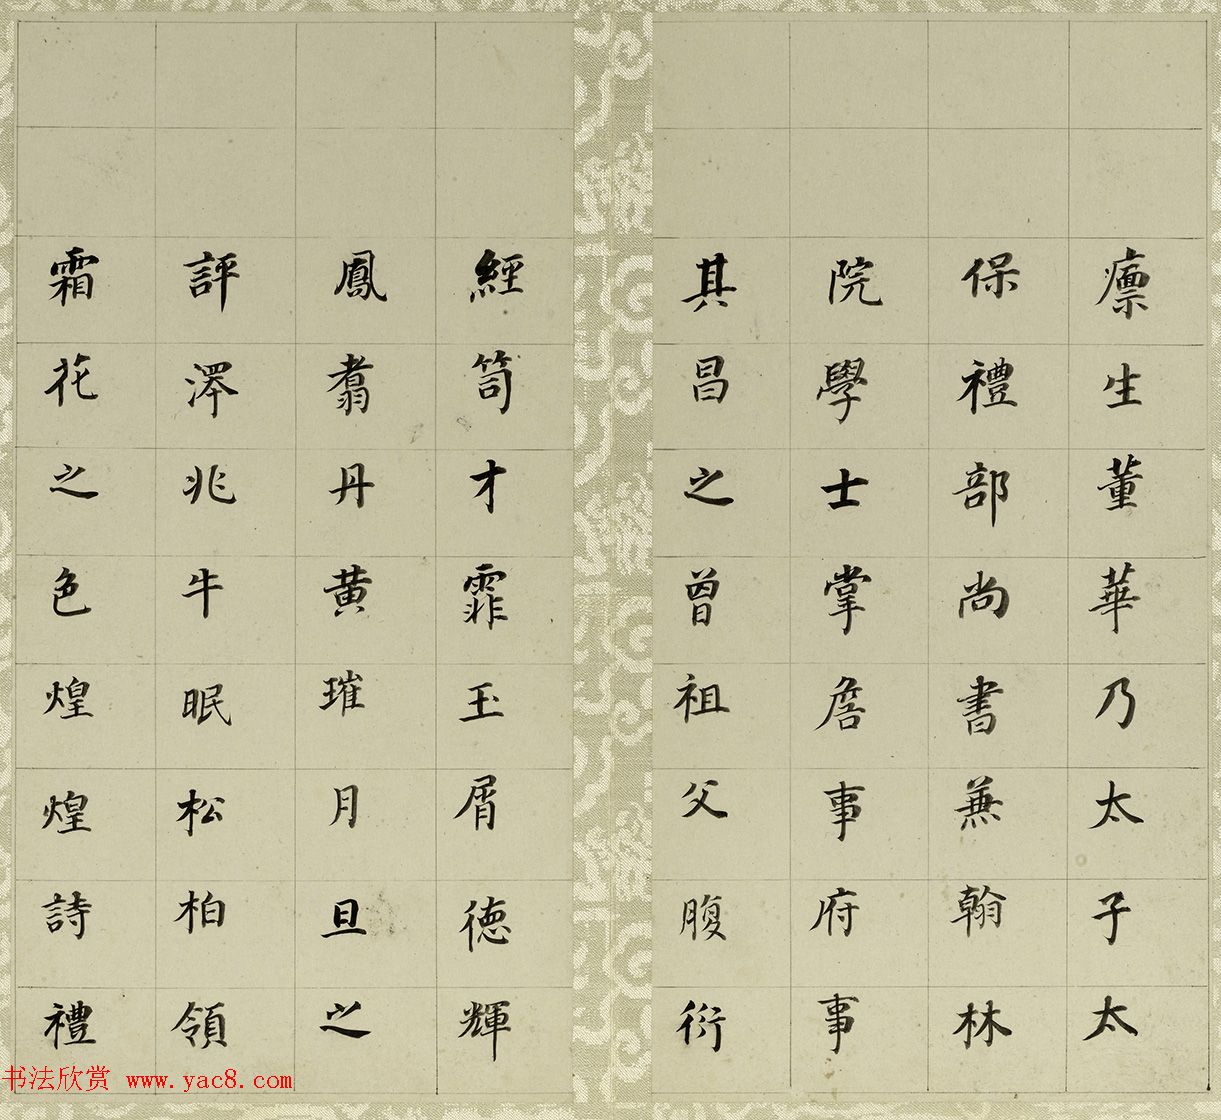 廩生董華乃太子太
保禮部尚書兼翰林
院學士掌詹事府事
其昌之曾祖父腹衍
經笥才霏玉屑德輝
鳳翥丹黃璀月旦之
評澤兆牛眠松柏領
霜花之色煌煌詩禮
书法欣赏 www.yac8.com